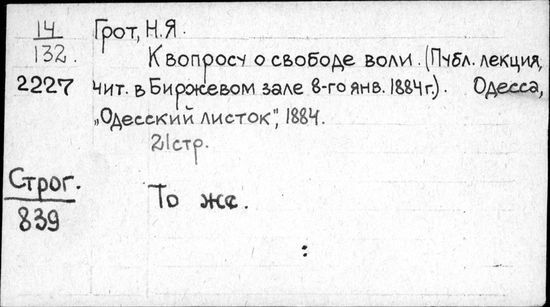 14 Грот, Н.Я.
132. К вопросу о свободе воли. (Публ. лекция,
2227 чит. в Биржевом зале 8-го янв. 1884г.). Одесса,
„Одесский листок", 1884.
21стр.
Строг. То же.
839